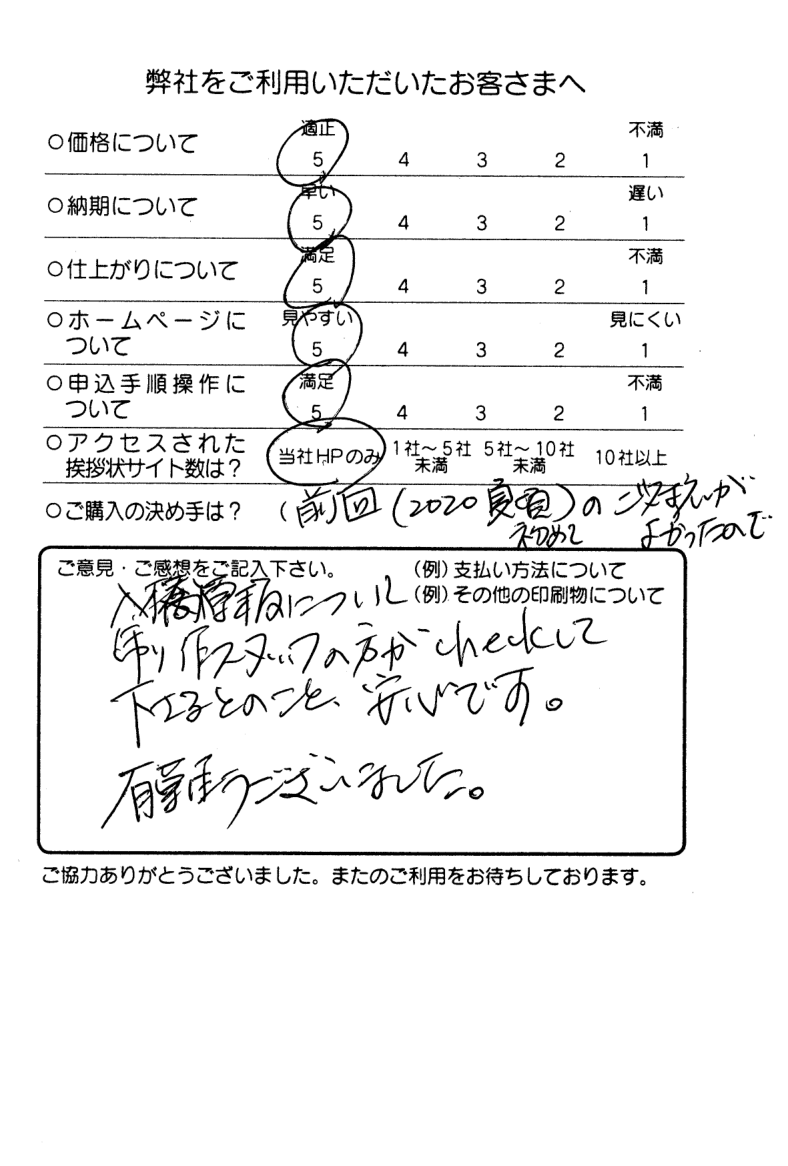 弊社をご利用いただいたお客さまへ
○価格について 適正 5 4 3 2 不満 1
○納期について 早い 5 4 3 2 遅い 1
○仕上がりについて 満足 5 4 3 2 不満 1
○ホームページについて 見やすい 5 4 3 2 見にくい 1
○申込手順操作について 満足 5 4 3 2 不満 1
○アクセスされた挨拶状サイト数は? 当社HPのみ 1社〜5社未満 5社〜10社未満 10社以上
○ご購入の決め手は? (前回(2020夏頃)の
初めて よかったので
ご意見・ご感想をご記入下さい。 (例)支払い方法について
(例)その他の印刷物について
について
制作スタッフの方がcheckして
下さるとのこと、安心です。
有難うございました。
ご協力ありがとうございました。またのご利用をお待ちしております。